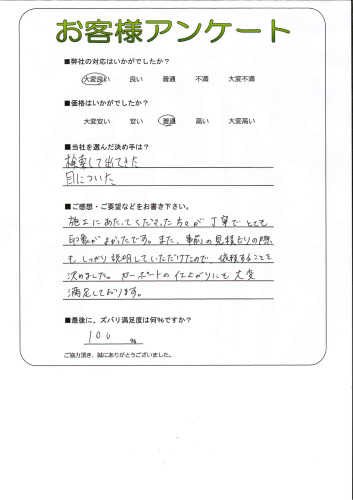 お客様アンケート
■弊社の対応はいかがでしたか?
大変良い 良い 普通 不満 大変不満
■価格はいかがでしたか?
大変安い 安い 普通 高い 大変高い
■当社を選んだ決め手は?
検索して出てきた
目についた
■ご感想・ご要望などをお書き下さい。
施工にあたってくださった方々が丁寧でとても
印象がよかったです。また、事前の見積もりの際
もしっかり説明していただけたので、依頼することを
決めました。カーポートの仕上がりにも大変
満足しております。
■最後に、ズバリ満足度は何%ですか?
100 %
ご協力頂き、誠にありがとうございました。